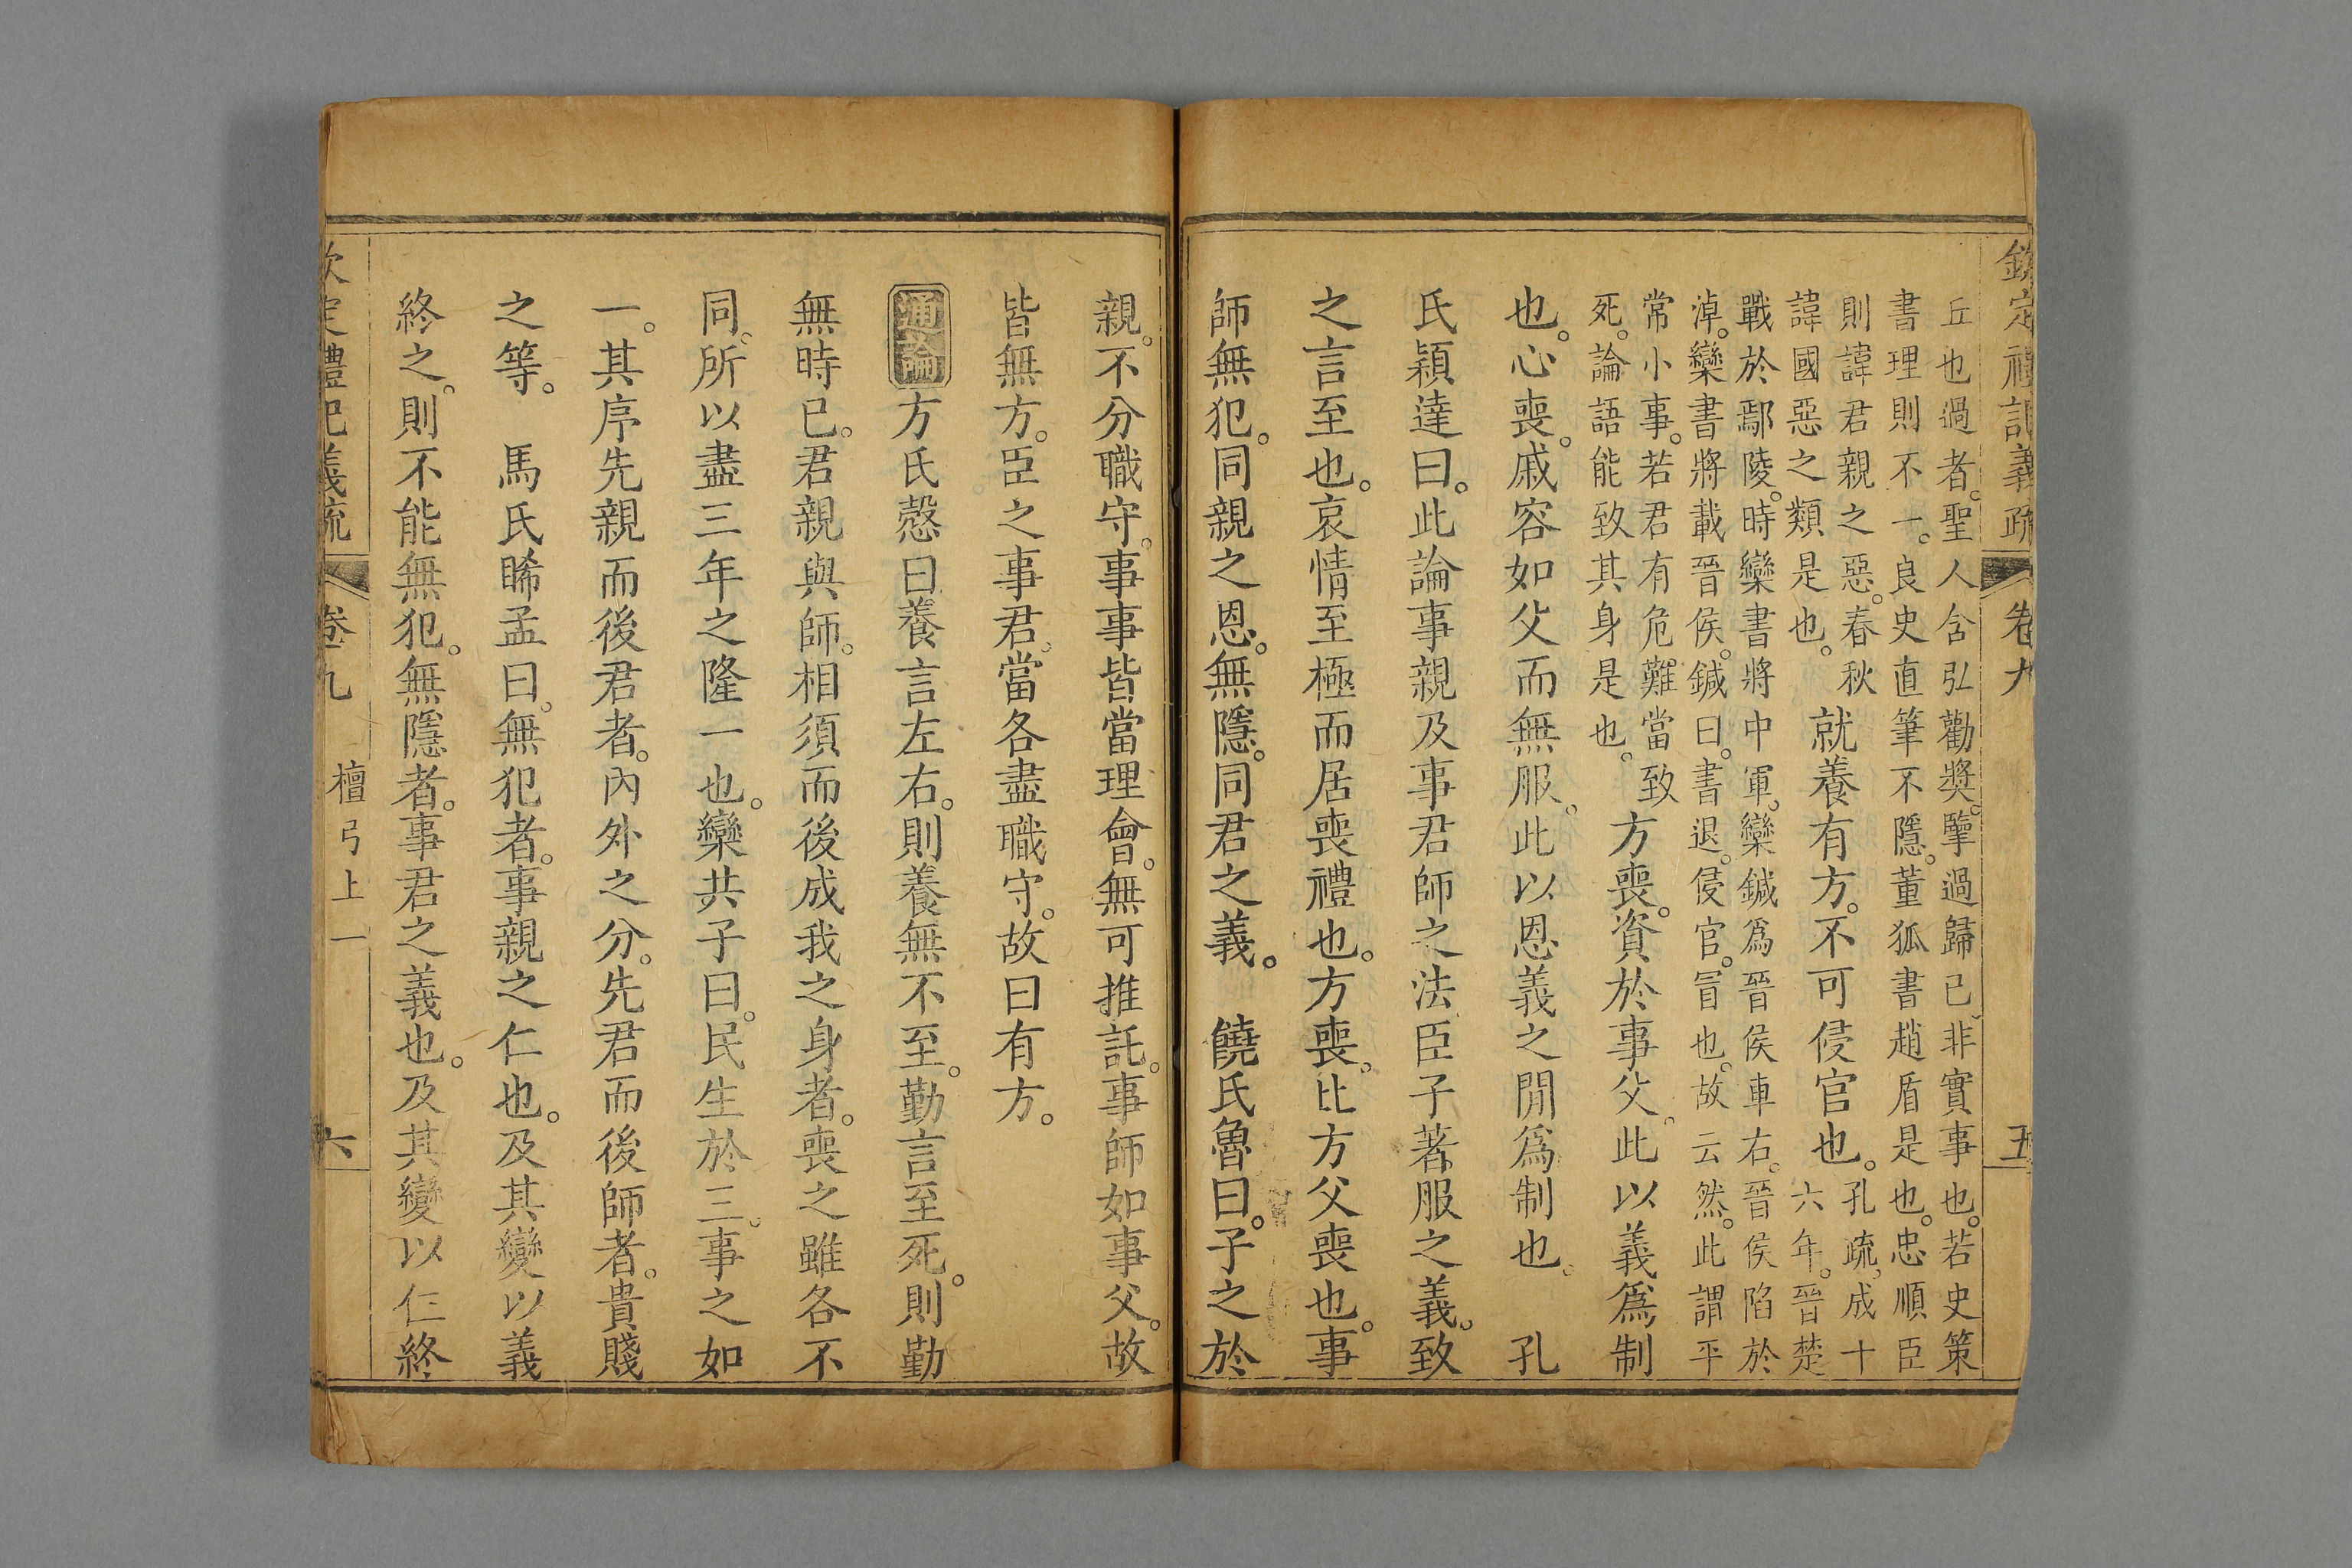 欽定禮記義疏 卷九 五
丘也過者。聖人含弘勸奬。擥過歸已。非實事也。若史策
書理則不一。良史直筆不隱。董狐書趙盾是也。忠順臣
則諱君親之惡。春秋
諱國惡之類是也。
就養有方。不可侵官也。
孔疏。成十
六年。晉楚
戰於鄢陵。時欒書將中軍。欒鍼爲晉侯車右。晉侯陷於
淖。欒書將載晉侯。鍼曰。書退。侵官。冒也。故云然。此謂平
常小事。若君有危難。當致
死。論語能致其身是也。
方喪。資於事父。此以義爲制
也。心喪。戚容如父而無服。此以恩義之閒爲制也。 孔
氏穎達曰。此論事親及事君師之法臣子著服之義。致
之言至也。哀情至極而居喪禮也。方喪。比方父喪也。事
師無犯。同親之恩。無隱。同君之義。 饒氏魯曰。子之於
親。不分職守。事事皆當理會。無可推託。事師如事父。故
皆無方。臣之事君。當各盡職守。故曰有方。
通論 方氏慤曰養言左右。則養無不至。勤言至死。則勤
無時已。君親與師。相須而後成我之身者。喪之雖各不
同。所以盡三年之隆一也。欒共子曰。民生於三。事之如
一。其序先親而後君者。內外之分。先君而後師者。貴賤
之等。 馬氏睎孟曰。無犯者。事親之仁也。及其變以義
終之。則不能無犯。無隱者。事君之義也。及其變以仁終
欽定禮記義疏 卷九 檀弓上一 六